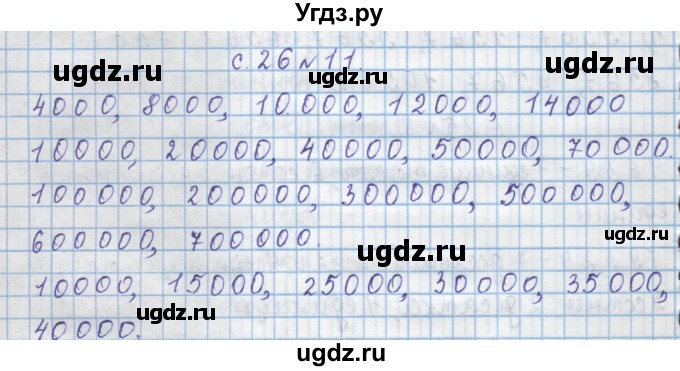 Угдз.ру
с. 26 № 11.
ugdz.ru ugdz.ru
4000, 8000, 10.000, 12000, 14000
10000, 20000, 40000, 50000, 70 000.
100000, 200000, 300000, 500 000,
ugdz.ru
600000, 700000.
ugdz.ru
10000, 15000, 25000, 30000, 35000,
ugdz.ru ugdz.ru
40000.
ugdz.ru